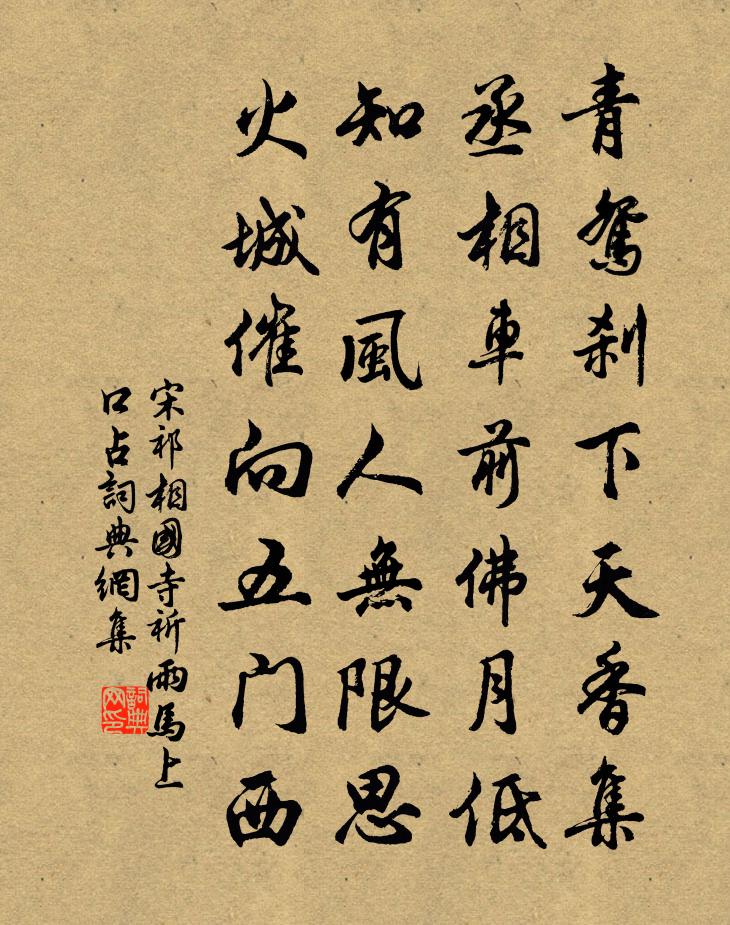 青鴛刹下天香集
丞相車前佛月低
知有風人無限思
火城催向五门西
宋祁相國寺祈雨馬上
口占詞典網集
詞典
网印